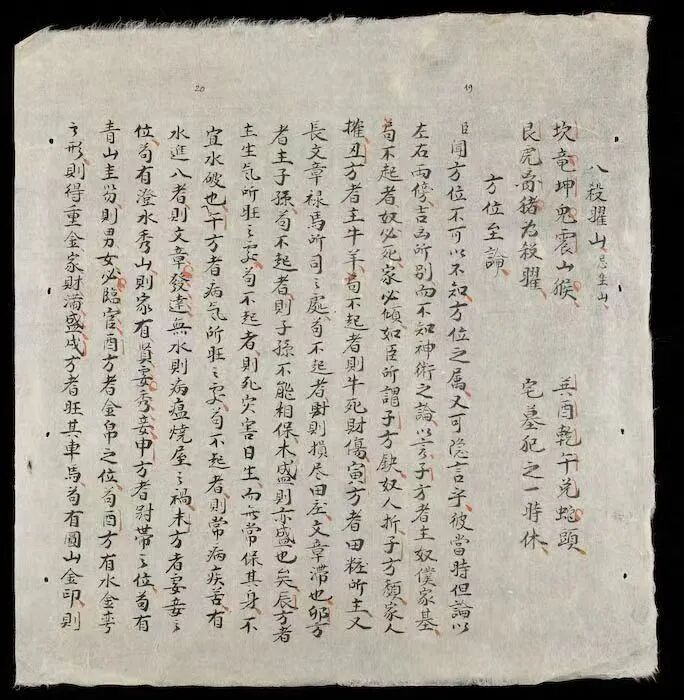 19
八殺曜山忌坐山
坎竜坤兎震山猴 巽酉乾午兌蛇頭
艮虎离猪為殺曜 宅墓犯之一時休
方位至論
臣聞方位不可以不知方位之属又可隐言乎彼當時但論以
左右兩傍吉凶所別而不知神術之論以言子方者主奴僕家基
苟不起者奴必死家必傾如臣所謂子方缺奴人折子方頹家人
摧丑方者主牛羊苟不起者則牛死財傷寅方者田粧所主又
長文章禄馬所司之處苟不起者財則損尽田庄文章滯也卯方
20
者主子孫苟不起者則子孫不能相保木盛則亦盛也矣辰方者
主生气所旺之處苟不起者則死災害日生而常保其身不
宜水破也午方者病気所旺之處苟不起者則常病疾苦有
水進八者則文章發達無水則病瘟燒屋之禍未方者妻妾之
位苟有澄水秀山則家有賢妻秀妾申方者附帶之位苟有
青山圭笏則男女必臨官酉方者金帛之位苟酉方有水金
之形則得重金家財滿盛戌方者旺其車馬苟有圓山金印則